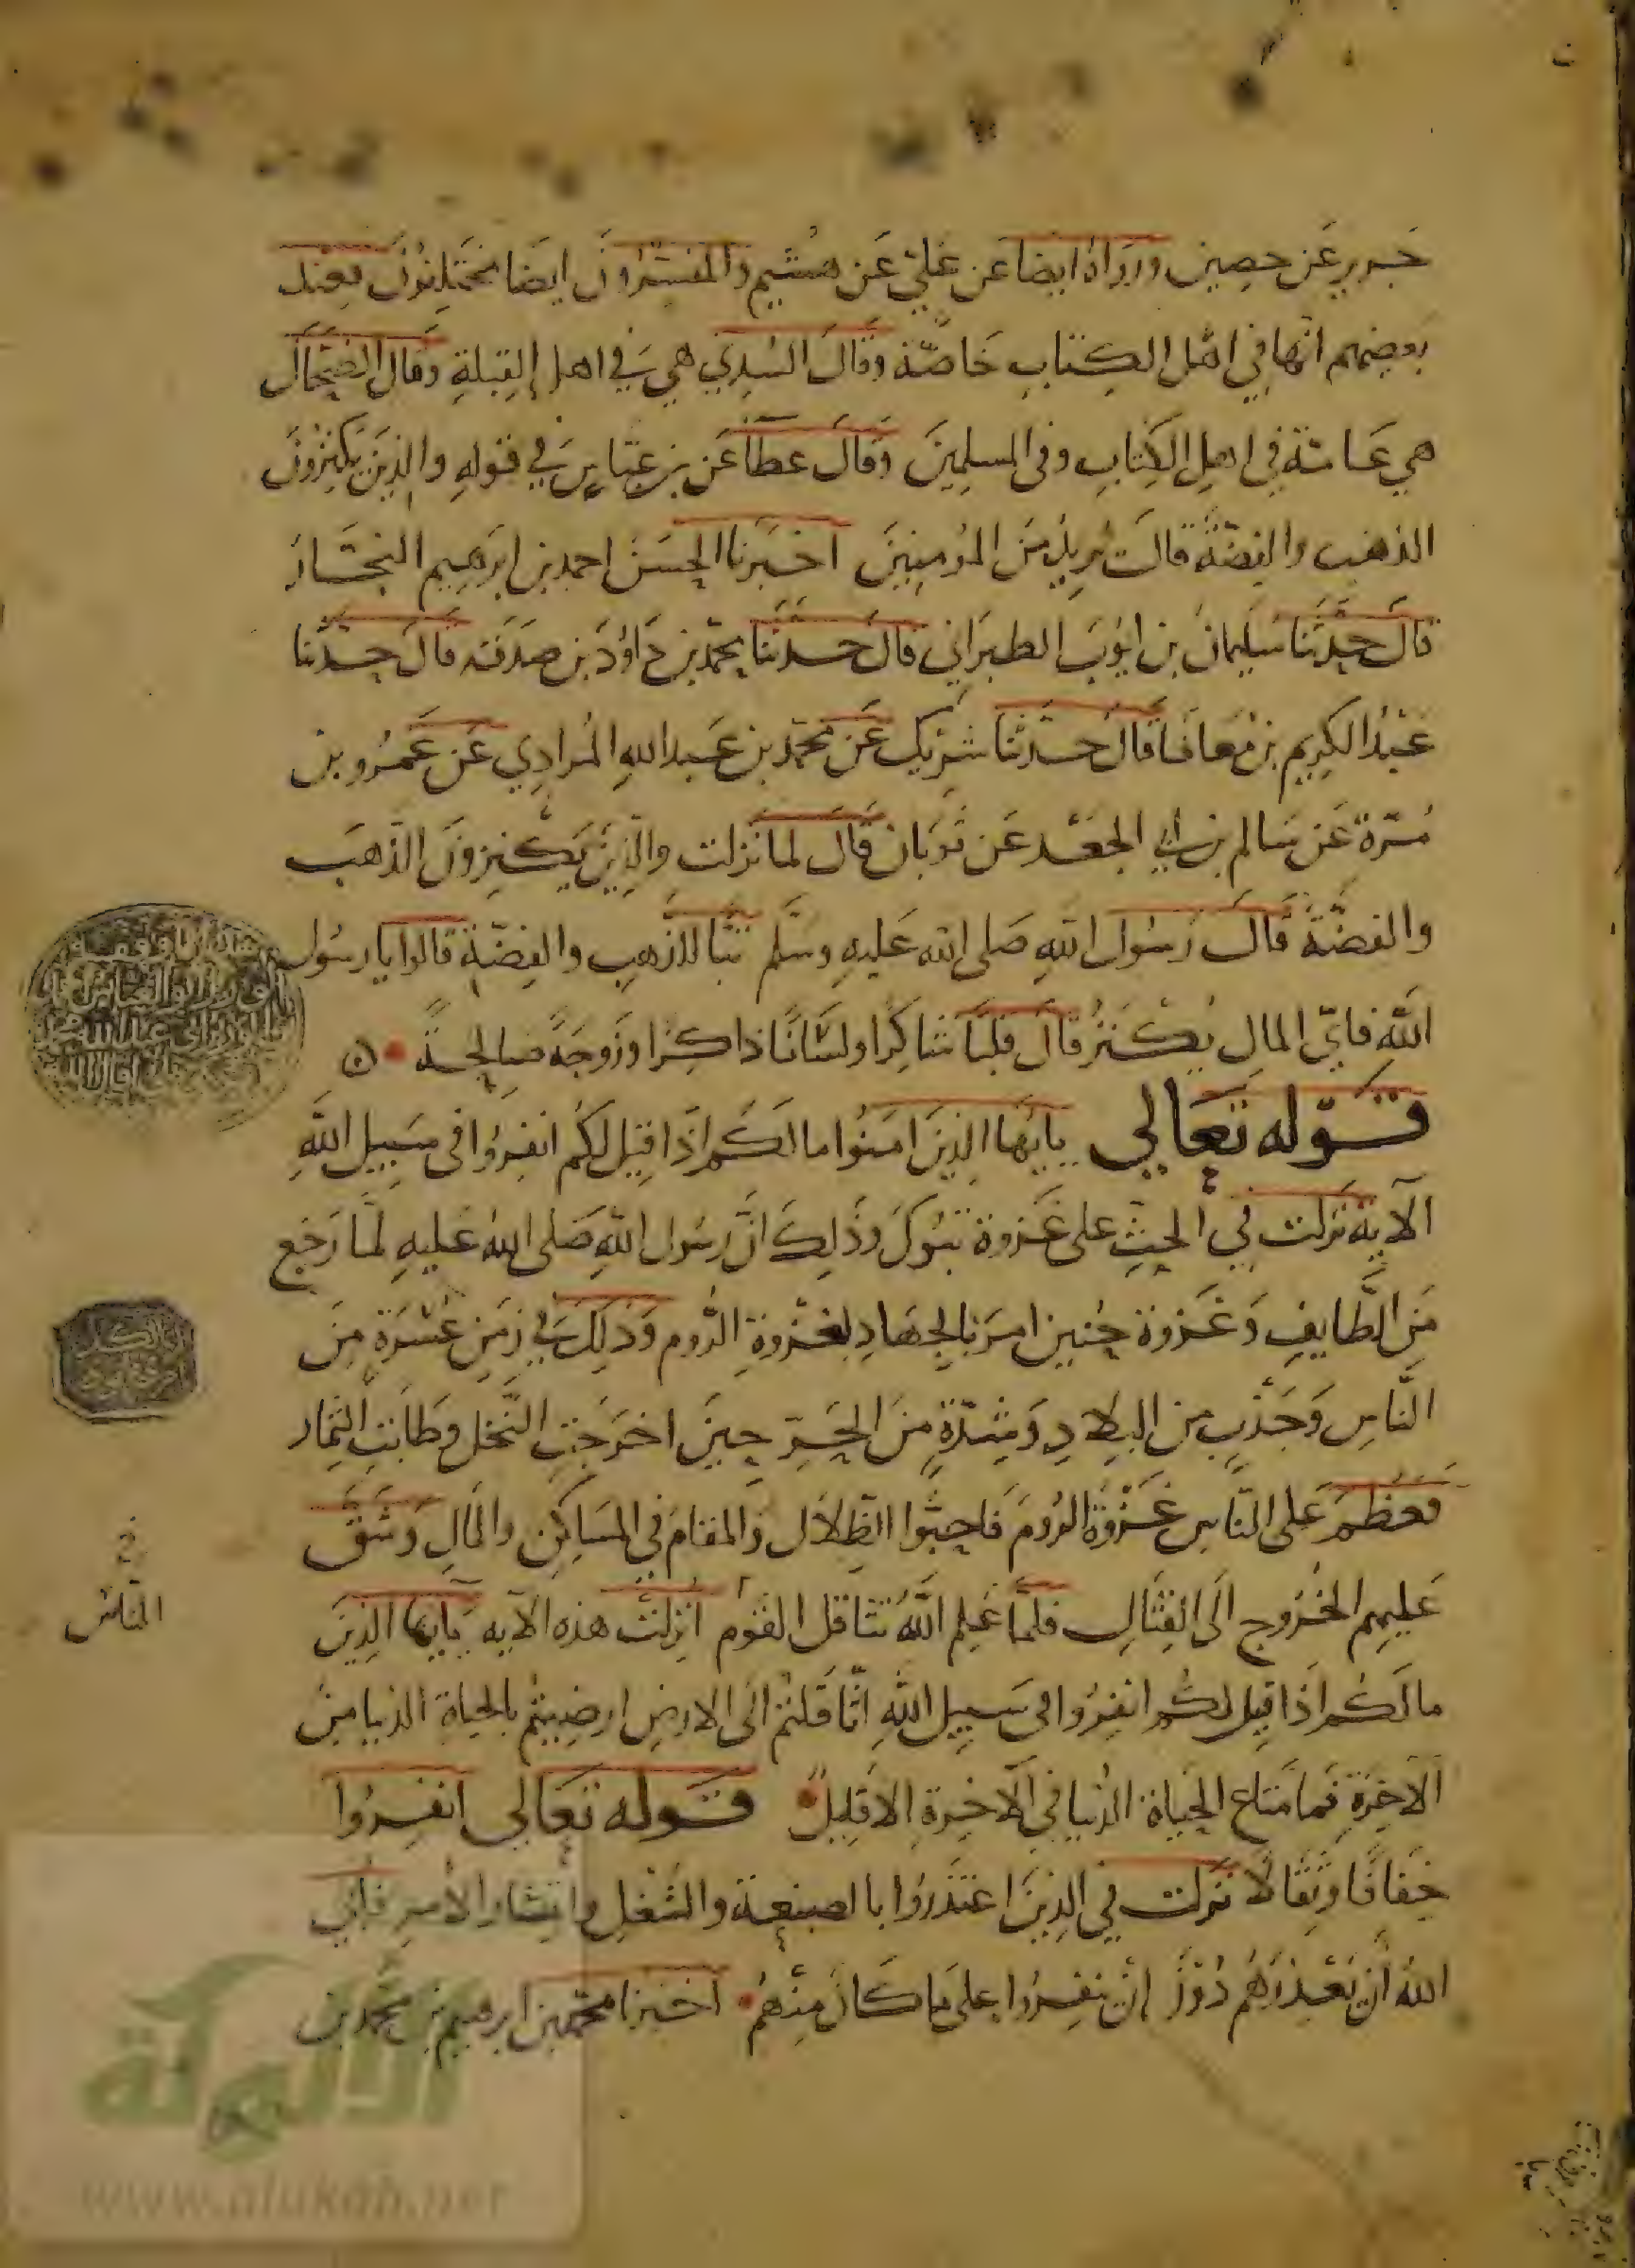 جرير عن حصين ورواه ايضا عن علي عن هشيم والمفسرون ايضا مختلفون فعند
بعضهم انها في اهل الكتاب خاصة وقال السدي هي في اهل القبلة وقال الضحاك
هي عامة في اهل الكتاب وفى المسلمين وقال عطا عن بن عباس في قوله والذين يكنزون
الذهب والفضة قال يريد من المومنين اخبرنا الحسن احمد بن ابرهيم النجار
قال حدثنا سليمان بن ايوب الطبراني قال حدثنا محمد بن داود بن صدقه قال حدثنا
عبد الكريم بن معافا قال حدثنا شريك عن محمد بن عبد الله المرادي عن عمرو بن
مرة عن سالم بن ابي الجعد عن ثوبان قال لما نزلت والذين يكنزون الذهب
والفضة قال رسول الله صلى الله عليه وسلم تبا للذهب والفضة قالوا يا رسول
الله فاي المال يكنز قال قلبا شاكرا ولسانا ذاكرا وزوجة صالحة
قوله تعالى يايها الذين امنوا ما لكم اذا قيل لكم انفروا فى سبيل الله
الآية نزلت في الحث على غزوة تبوك وذلك ان رسول الله صلى الله عليه لما رجع
من الطايف وغزوة حنين امر بالجهاد لغزوة الروم وذلك في زمن عسرة من
الناس وجدب من البلاد وشدة من الحر حين اخرجت النخل وطابت الثمار
فعظم على الناس غزوة الروم فاحبوا الظلال والمقام في المساكن والمال وشق
عليهم الخروج الى القتال فلما علم الله تثاقل القوم انزلت هذه الآيه يايها الذين
ما لكم اذا قيل لكم انفروا فى سبيل الله اثاقلتم الى الارض ارضيتم بالحياة الدنيا من
الآخرة فما متاع الحياة الدنيا في الآخرة الا قليل قوله تعالى انفروا
خفافا وثقالا نزلت في الذين اعتذروا بالصنيعة والشغل وانتشار الأمر فابي
الله ان يعذرهم دون ان ينفروا على ما كان منهم اخبرنا محمد بن ابرهيم بن محمد بن
الناس
الألوكة
www.alukah.net